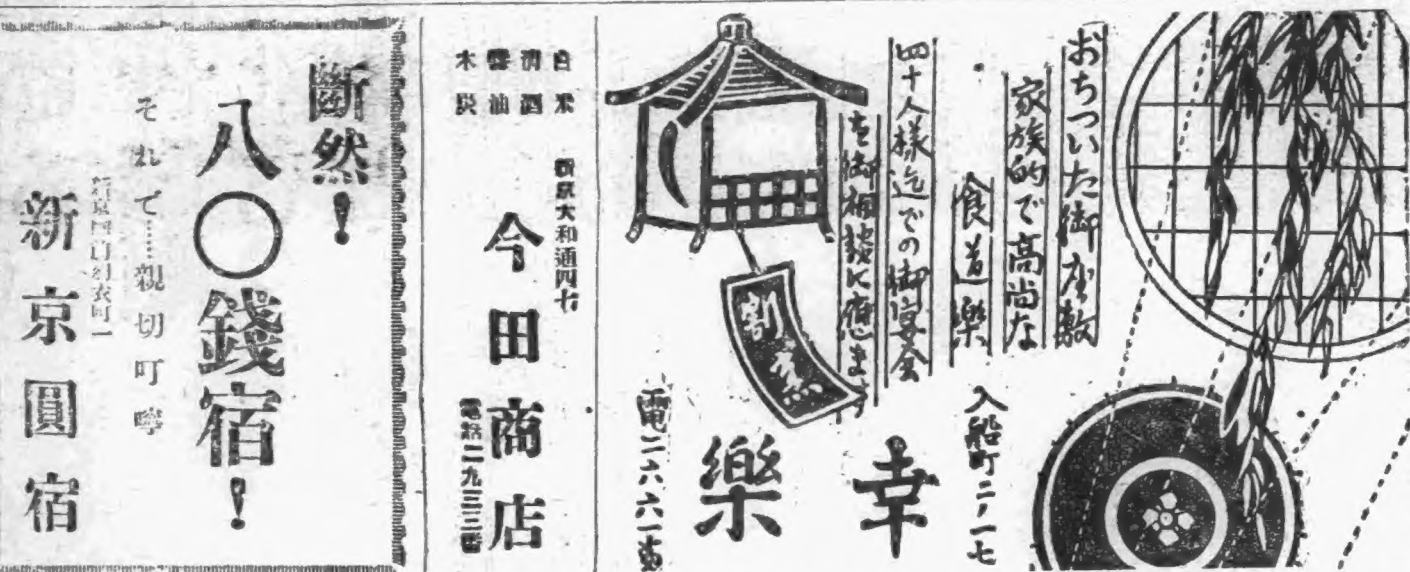 おちついた御座敷
家族的で高尚な
食道樂
四十人様迄での御宴会
も御相談に應じます
割烹
入船町二ノ一七
幸樂
電二六六一番
白米
清酒
醬油
木炭
新京大和通四七
今田商店
電話二九三三番
斷然!
八〇錢宿!
それで……親切町嚀
新京圓宿